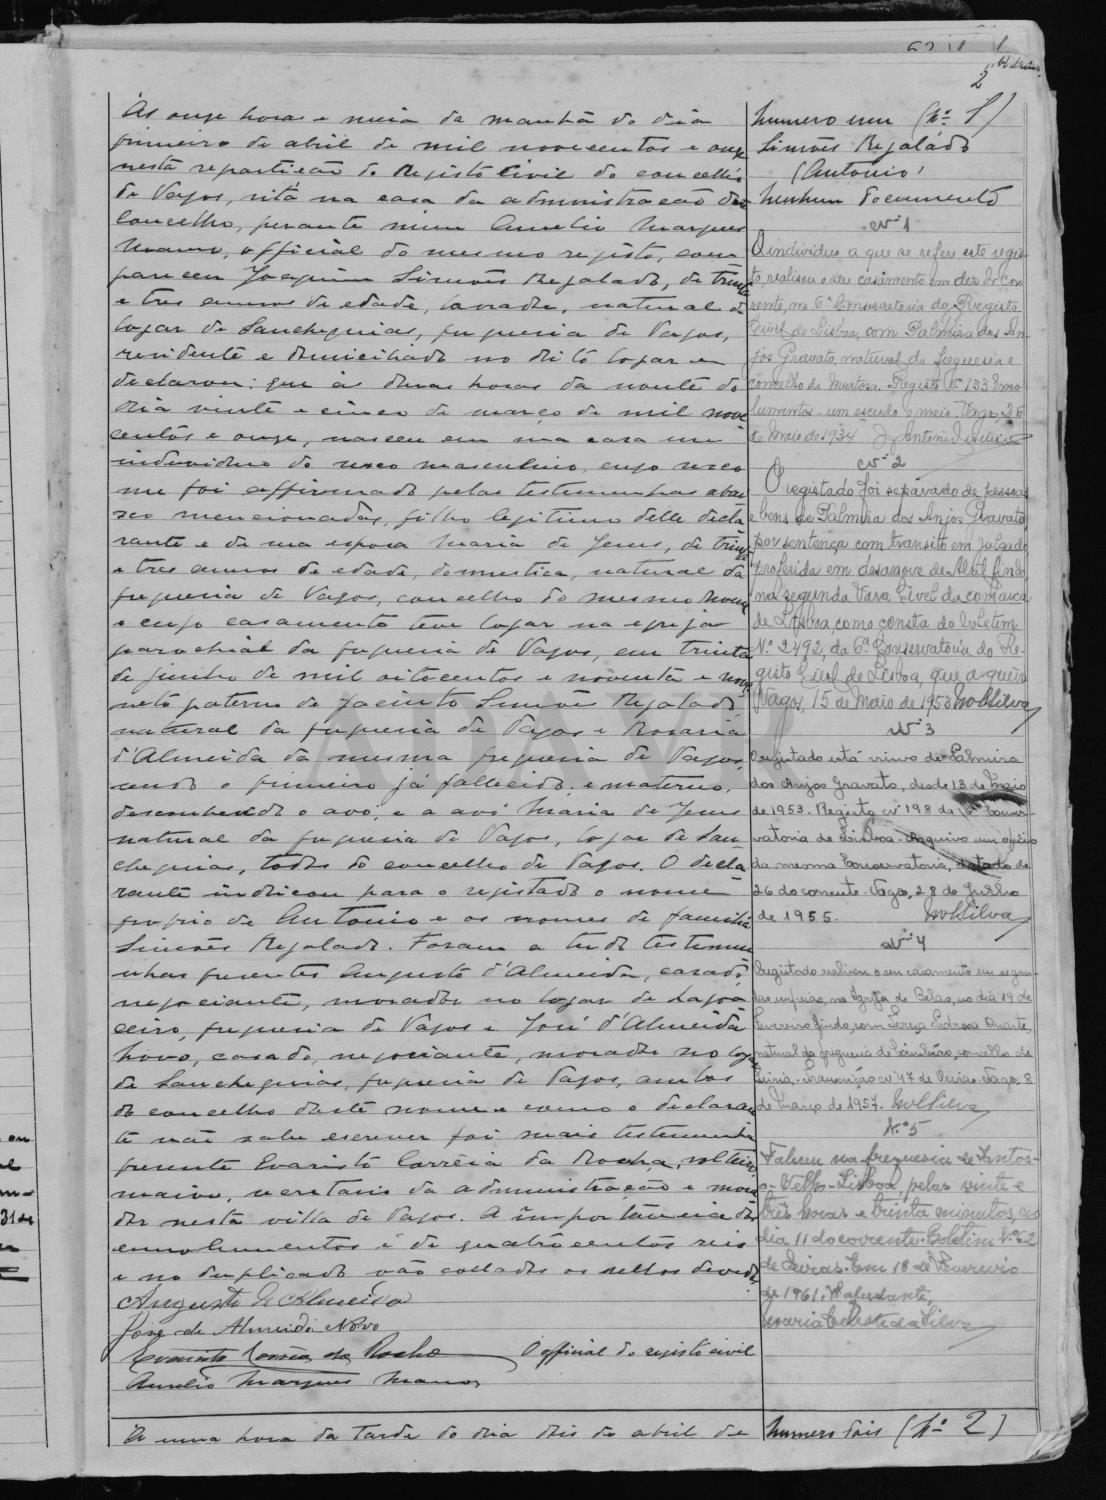 2
Ás onze horas e meia da manhã do dia
primeiro de abril de mil novecentos e onze
nesta repartição do Registo Civil do concelho
de Vagos, sita na casa da administração do
concelho, perante mim Aurelio Marques
Mano, official do mesmo registo, com
pareceu Joaquim Simões Regalado, de trinta
e tres annos de edade, lavrador, natural do
logar de Sanchequias, freguesia de Vagos,
residente e domiciliado no dito logar e
declarou: que ás duas horas da noute do
dia vinte e cinco de março de mil nove
centos e onze, nasceu em sua casa um
individuo do sexo masculino, cujo sexo
me foi affirmado pelas testemunhas abai
xo mencionadas, filho legitimo delle decla
rante e de sua esposa Maria de Jesus, de trinta
e tres annos de edade, domestica, natural da
freguesia de Vagos, concelho do mesmo nome
e cujo casamento teve logar na egreja
parochial da freguesia de Vagos, em trinta
de junho de mil oitocentos e noventa e nove
neto paterno de Jacinto Simões Regalado
natural da freguesia de Vagos e Rosaria
d'Almeida da mesma freguesia de Vagos,
sendo o primeiro já fallecido, e materno,
desconhecido o avô, e a avó Maria de Jesus
natural da freguesia de Vagos, logar de San
chequias, todos do concelho de Vagos. O decla
rante indicou para o registado o nome
proprio de Antonio e os nomes de familia
Simões Regalado. Foram a tudo testemu
nhas presentes Augusto d'Almeida, casado
negociante, morador no logar de Lagoa
ceiro, freguesia de Vagos e José d'Almeida
Novo, casado, negociante, morador no logar
de Sanchequias, freguesia de Vagos, ambos
do concelho deste nome e como o declaran
te não sabe escrever foi mais testemunha
presente Evaristo Corrêia da Rocha, solteiro
maior, secretario da administração e mora
dor nesta villa de Vagos. A importancia dos
emolumentos é de quatrocentos reis
e no duplicado vão collados os sellos devidos.
Augusto de Almeida
José de Almeida Novo
Evaristo Correia da Rocha O official do registo civil
Aurelio Marques Mano
Á uma hora da tarde do dia dois de abril de
Numero um (Nº 1)
Simões Regalado
(Antonio)
Nenhum documento
Nº 1
O individuo a que se refere este regis-
to, realisou o seu casamento em dez do cor
rente, na 6ª Conservatoria do Registo
Civil de Lisboa, com Palmira dos An-
jos Gravato, natural da freguesia e
concelho da Murtosa. Registo Nº 133. Emo
lumentos - um escudo e meio. Vagos, 26
de Maio de 1934.
Nº 2
O registado foi separado de pessoas
e bens de Palmira dos Anjos Gravato,
por sentença com transito em julgado
proferida em desanove de Abril findo,
na segunda Vara Civel da comarca
de Lisboa, como consta do boletim
Nº 2492, da 6ª Conservatória do Re-
gisto Civil de Lisboa, que arquivo
Vagos, 15 de Maio de 1953. MolSilva
Nº 3
O registado está viuvo de Palmira
dos Anjos Gravato, desde 13 de Maio
de 1953. Registo nº 198 da 6ª Conser-
vatoria de Lisboa. Arquivo um oficio
da mesma Conservatoria, datado de
26 do corrente. Vagos, 28 de Julho
de 1955. MolSilva
Nº 4
O registado realisou o seu casamento em segun-
das nupcias, na Igreja de Belas, no dia 19 de
Fevereiro findo, com Duarte,
natural da freguesia de concelho de
Leiria. Transcrição nº 47 de Oeiras. Vagos, 8
de Março de 1957. MolSilva
N.º 5
Faleceu na freguesia de Santos-
o-Velho - Lisboa, pelas vinte e
três horas e trinta minutos, no
dia 11 do corrente. Boletim Nº 62
de Oeiras. Em 18 de Fevereiro
de 1961. A ajudante,
Maria Celeste da Silva
Numero dois (Nº 2)
ADAVR